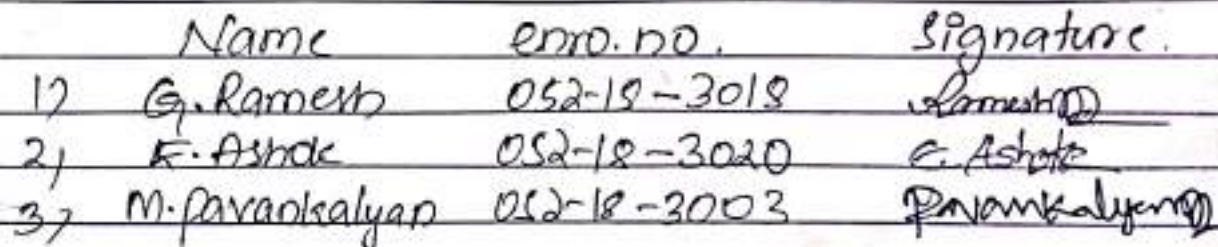 Name enro.no. Signature.
1) G.Ramesh 052-18-3018 Ramesh
2) E.Ashok 052-18-3020 E.Ashok
3) M.Pavankalyan 052-18-3003 Pavankalyan